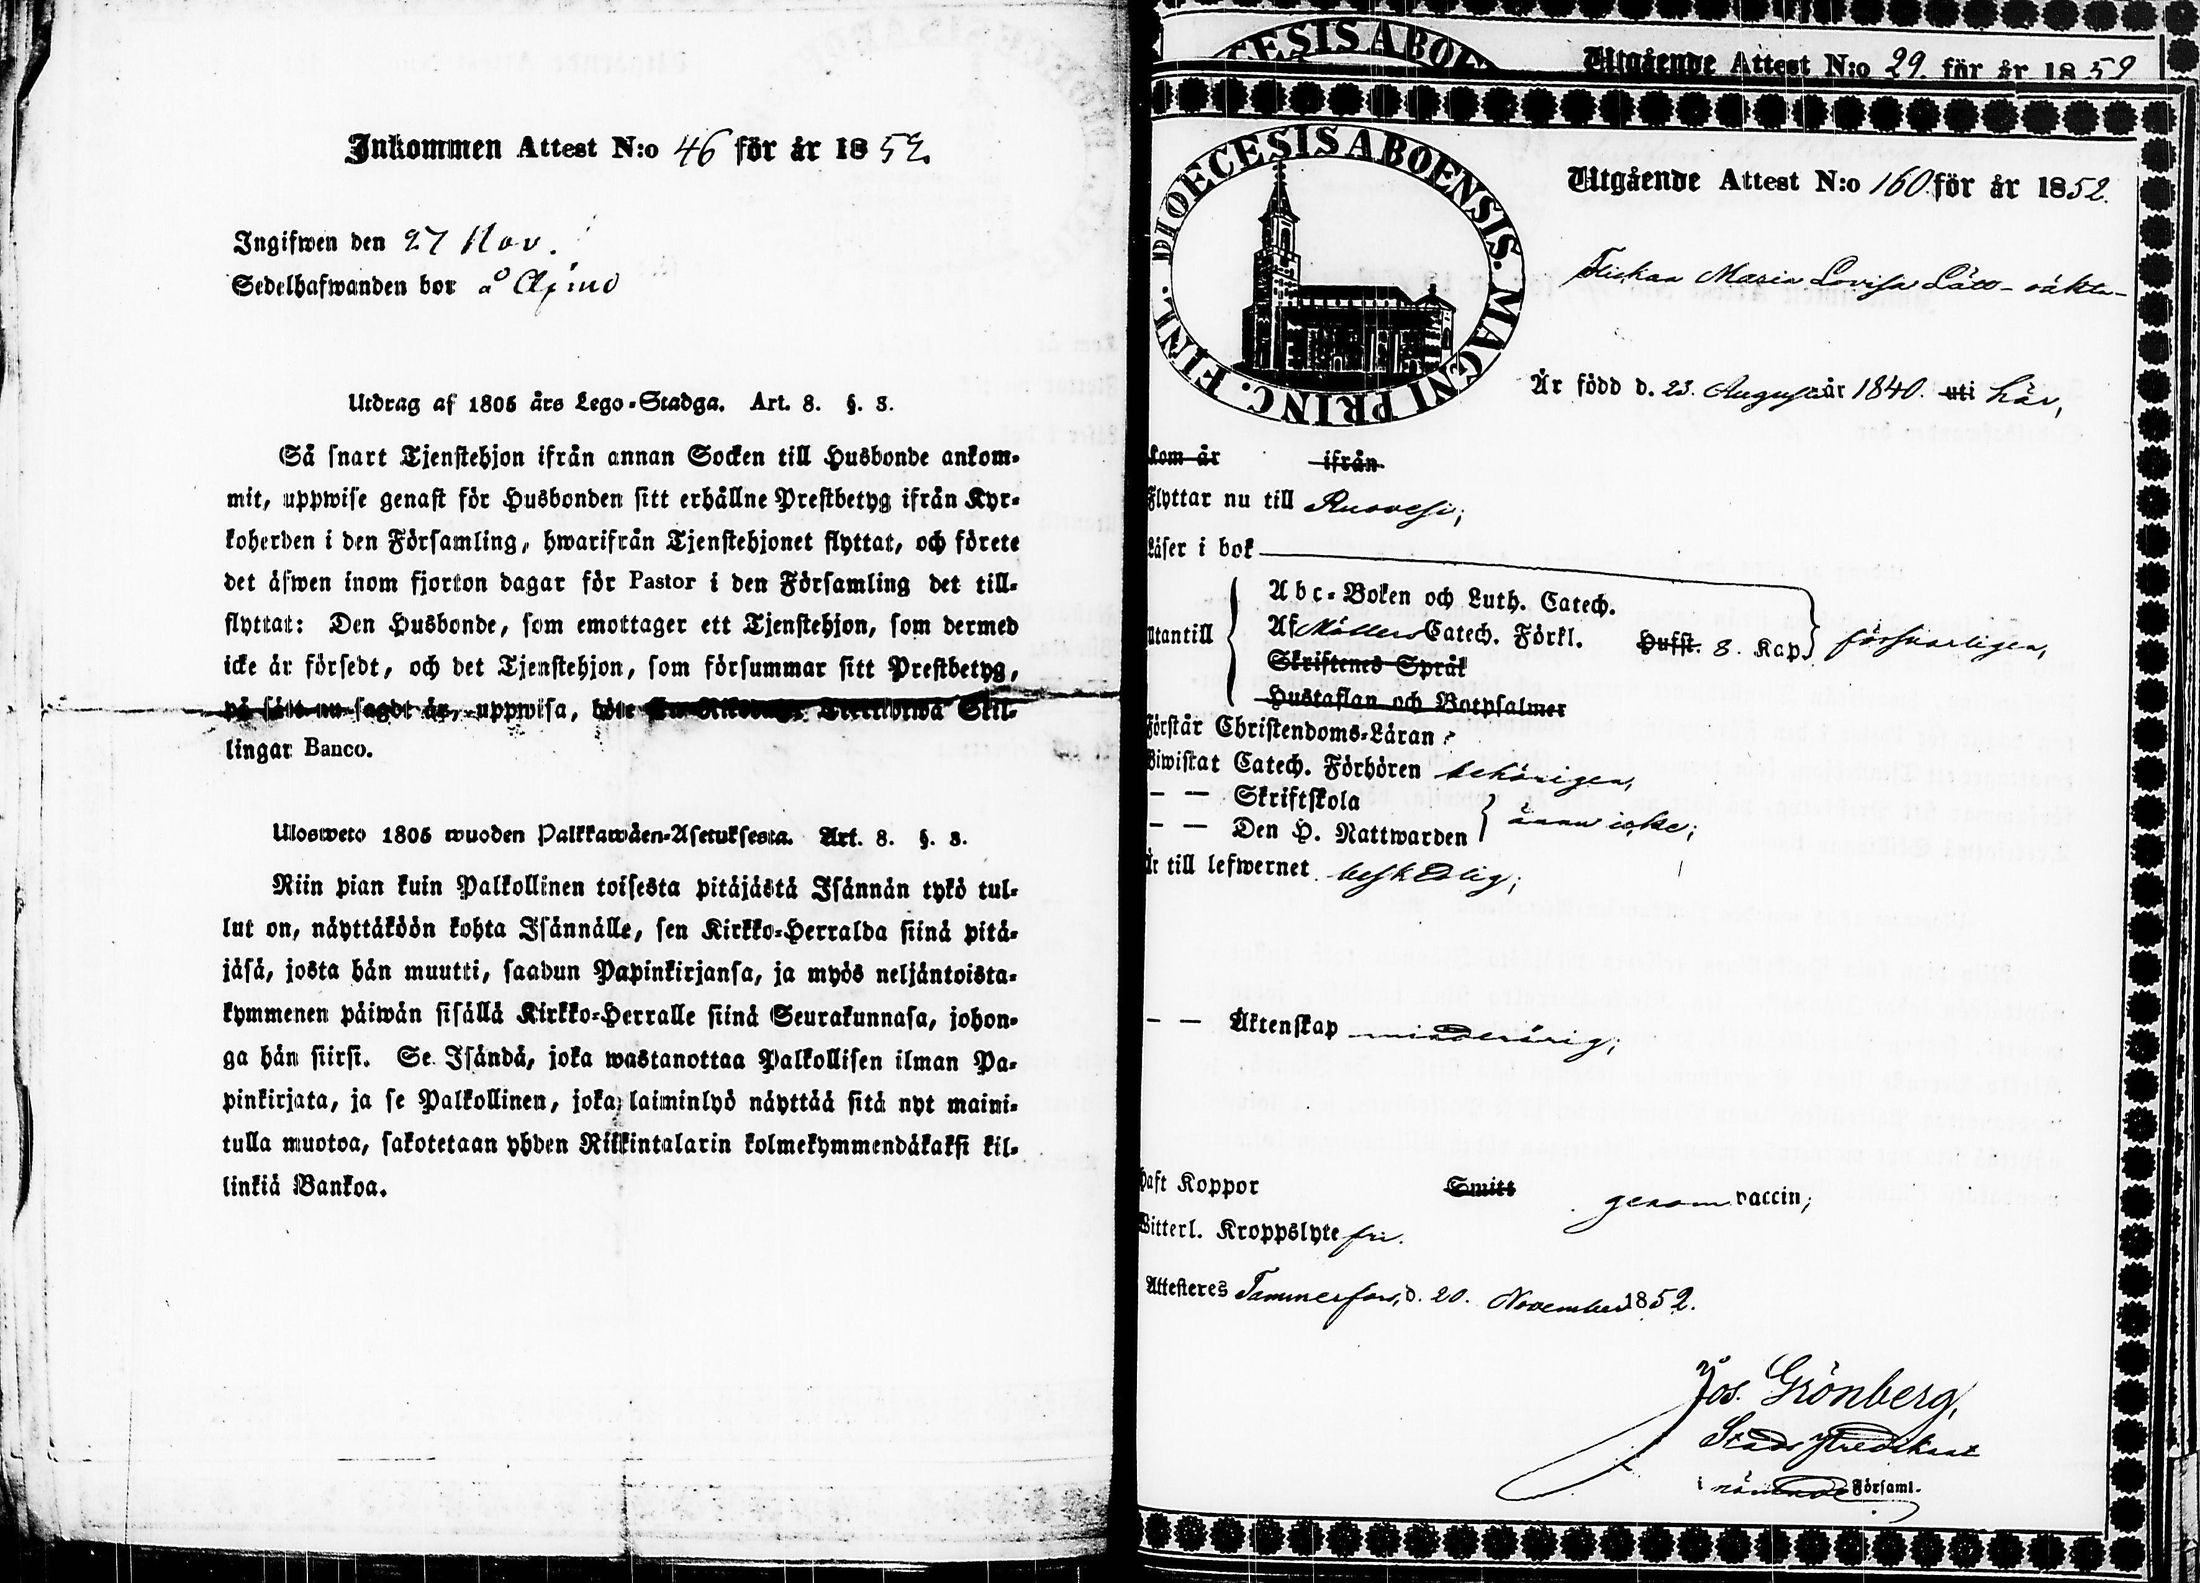 Inkommen Attest N:o 46 för år 1852.
Ingifwen den 27 Nov.
Sedelhafwanden bor å
Utdrag af 1805 års Lego-Stadga. Art. 8. §. 3.
Så snart Tjenstehjon ifrån annan Socken till Husbonde ankom-
mit, uppwise genast för Husbonden sitt erhållne Prestbetyg ifrån Kyr-
koherden i den Församling, hwarifrån Tjenstehjonet flyttat, och förete
det äfwen inom fjorton dagar för Pastor i den Församling det till-
flyttat: Den Husbonde, som emottager ett Tjenstehjon, som dermed
icke är försedt, och det Tjenstehjon, som försummar sitt Prestbetyg,
på sätt nu sagdt är, uppwisa, böte Skil-
lingar Banco.
Ulosweto 1805 wuoden Palkkawäen-Asetuksesta. Art. 8. §. 3.
Niin pian kuin Palkollinen toisesta pitäjästä Isännän tykö tul-
lut on, näyttäköön kohta Isännälle, sen Kirkko-Herralda siinä pitä-
jäsä, josta hän muutti, saadun Papinkirjansa, ja myös neljäntoista-
kymmenen päiwän sisällä Kirkko-Herralle siinä Seurakunnasa, johon-
ga hän siirsi. Se Isändä, joka wastanottaa Palkollisen ilman Pa-
pinkirjata, ja se Palkollinen, joka laiminlyö näyttää sitä nyt maini-
tulla muotoa, sakotetaan yhden Riikintalarin kolmekymmendäkaksi kil-
linkiä Bankoa.
CESIS ABOE
Utgående Attest N:o 29. för år 1859
DIOECESIS ABOENSIS. MAGNI PRINC. FINL.
Utgående Attest N:o 160 för år 1852.
Flickan Maria Lovisa
Är född d. 23. Augusti år 1840. uti här,
kom år ifrån
Flyttar nu till Ruovesi,
Läser i bok
Utantill
Abc-Boken och Luth. Catech.
Af Möllers Catech. Förkl. Hufst. 8. Kap. försvarligen,
Skriftenes Språk
Hustaflan och Botpsalmer
Förstår Christendoms-Läran
Biwistat Catech. Förhören behörigen,
— — Skriftskola
— — Den H. Nattwarden ännu icke;
Är till lefwernet beskedlig;
— — Äktenskap minderårig;
Haft Koppor Smitt genom vaccin;
Witterl. Kroppslyte fri.
Attesteres Tammerfors, d. 20. November 1852.
Jos. Grönberg,
Stads Predikant
i nämnde Församl.